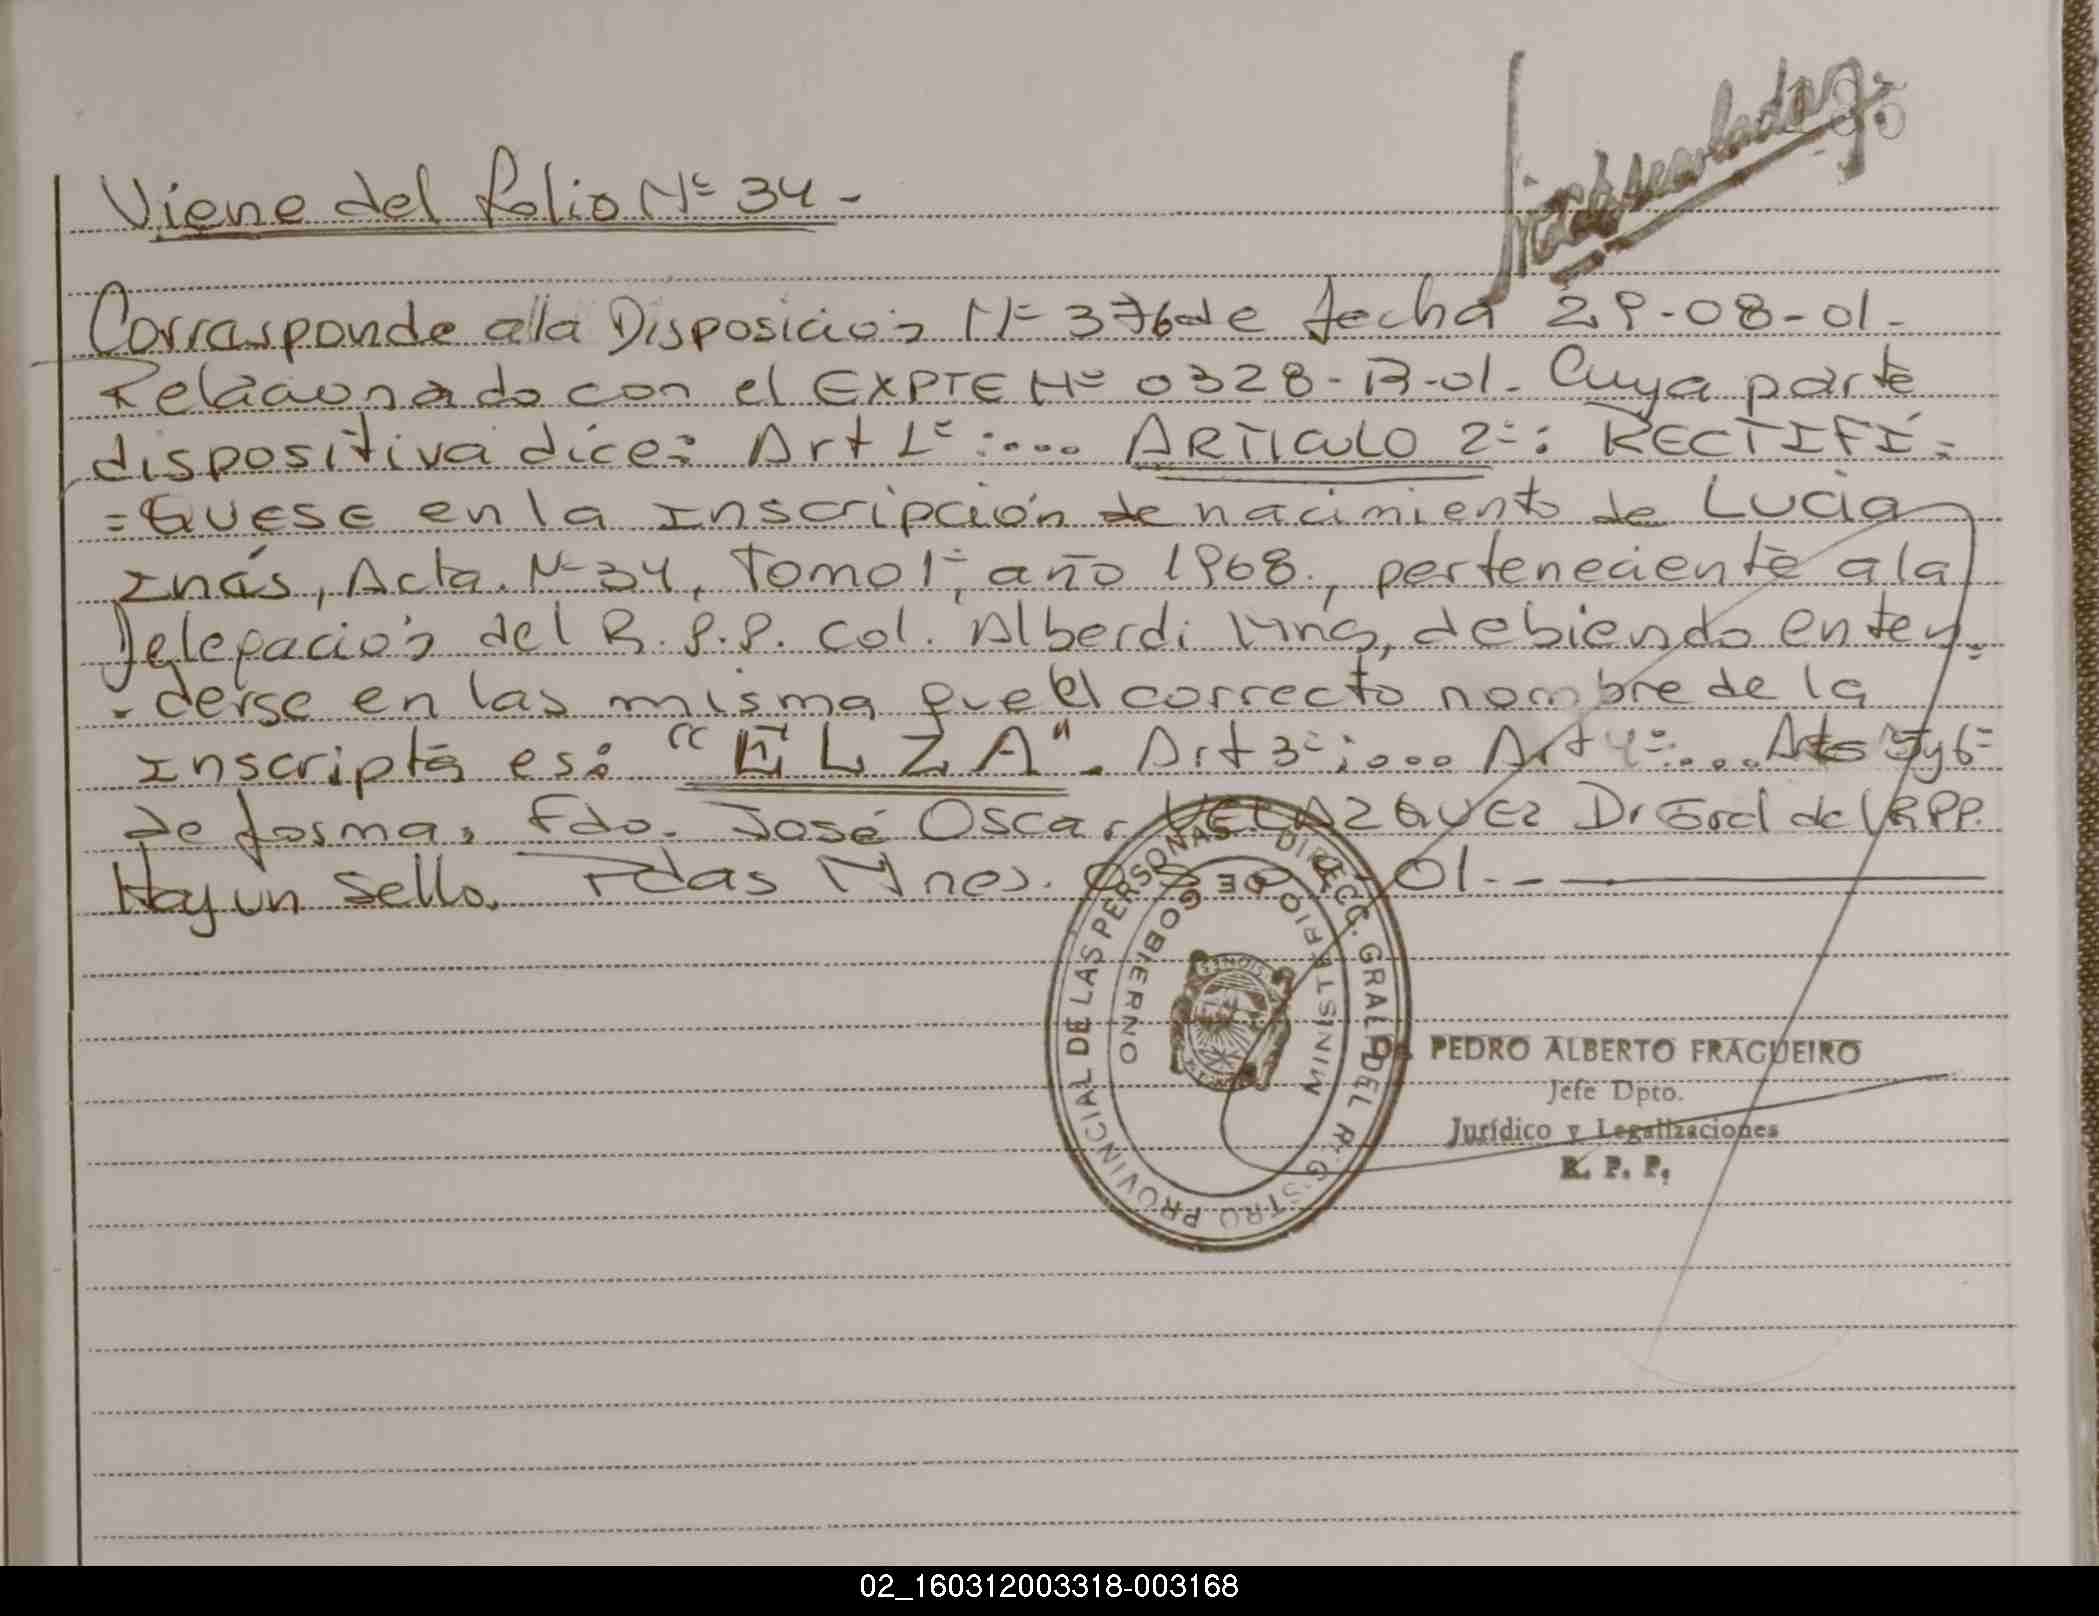 Viene del folio Nº 34 -
Corresponde a la Disposición Nº 376 de fecha 29-08-01-
Relacionado con el EXPTE Nº 0328-B-01. Cuya parte
dispositiva dice: Art 1º:.... ARTICULO 2º: RECTIFÍ=
=QUESE en la Inscripción de nacimiento de Lucia
Inés, Acta Nº 34, Tomo 1º, año 1968, perteneciente a la
Delegación del R.P.P. Col. Alberdi Mnes, debiendo enten=
-derse en las misma que el correcto nombre de la
Inscripta es: "ELZA". Art 3º:.... Art 4º:.... Arts 5 y 6º
de forma. Fdo. José Oscar VELAZQUEZ Dr Gral del RPP.
Hay un sello. Pdas Mnes. 01.-
DIRECC. GRAL. DEL REGISTRO PROVINCIAL DE LAS PERSONAS
MINISTERIO DE GOBIERNO
MISIONES
Dr. PEDRO ALBERTO FRAGUEIRO
Jefe Dpto.
Jurídico y Legalizaciones
R. P. P.
02_160312003318-003168